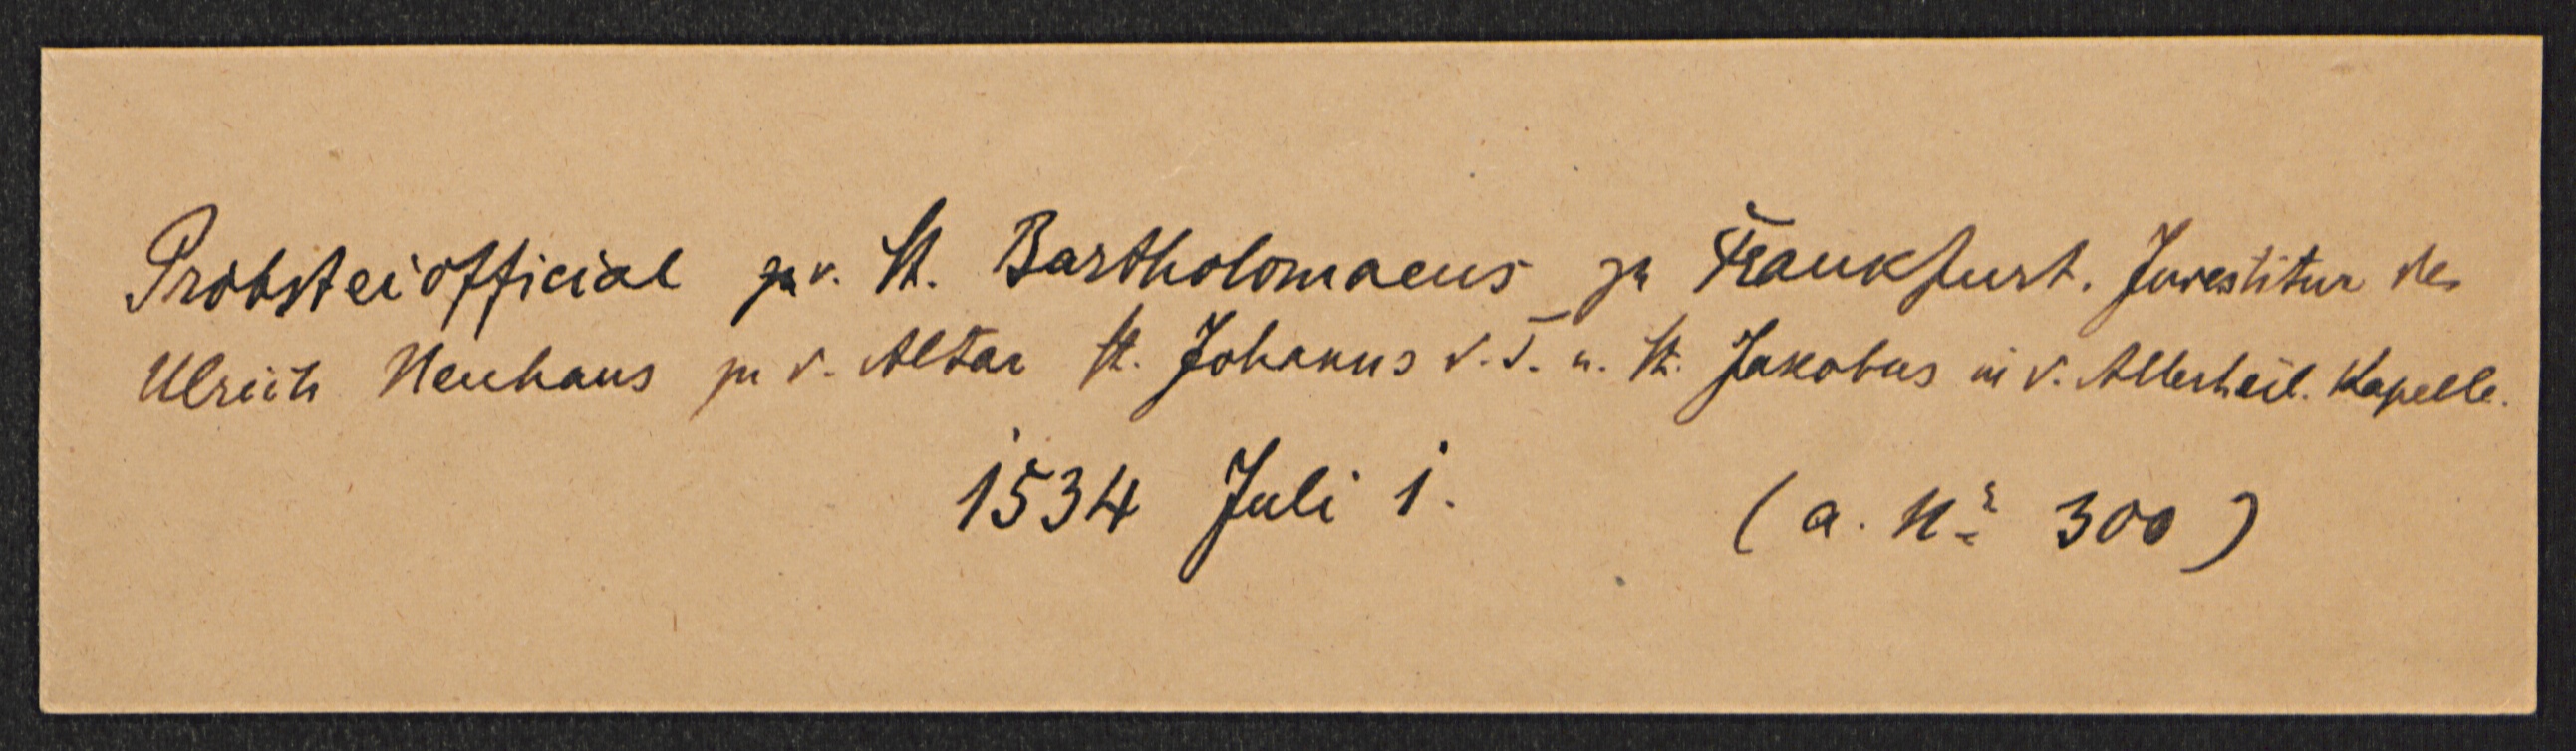 Probsteiofficial zu v. St. Bartholomaeus zu Frankfurt. Investitur des
Ulrich Neuhaus zu d. Altar St. Johanns d. T. u. St. Jakobus in d. Allerheil. Kapelle.
1534 Juli 1.
(a. Nr 300)